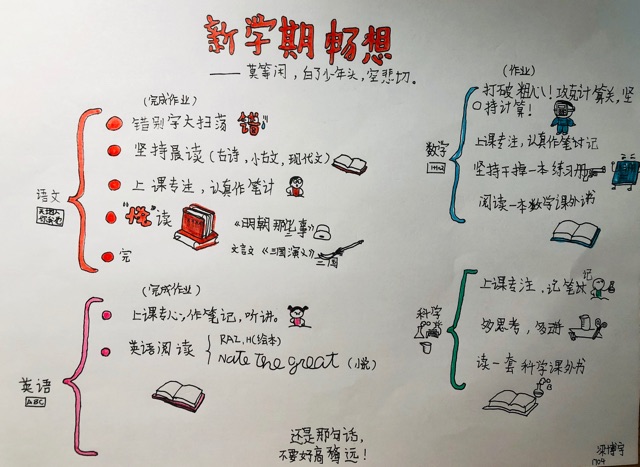 新学期畅想
——莫等闲，白了少年头，空悲切。
语文
(完成作业)
错别字大扫荡 错
坚持晨读(古诗，小古文，现代文)
上课专注，认真作笔计
读 《明朝那些事》
文言文《三国演义》三国
完
英语
ABC
(完成作业)
上课专心，作笔记，听讲。
英语阅读 RAZ，H(绘本)
Nate the great (小说)
数学
(作业)
打破粗心！攻克计算关，坚
持计算！
上课专注，认真作笔记
坚持干掉一本练习册
阅读一本数学课外书
科学
上课专注，记笔记
多思考，
读一套科学课外书
还是那句话，
不要好高骛远！
梁博宇